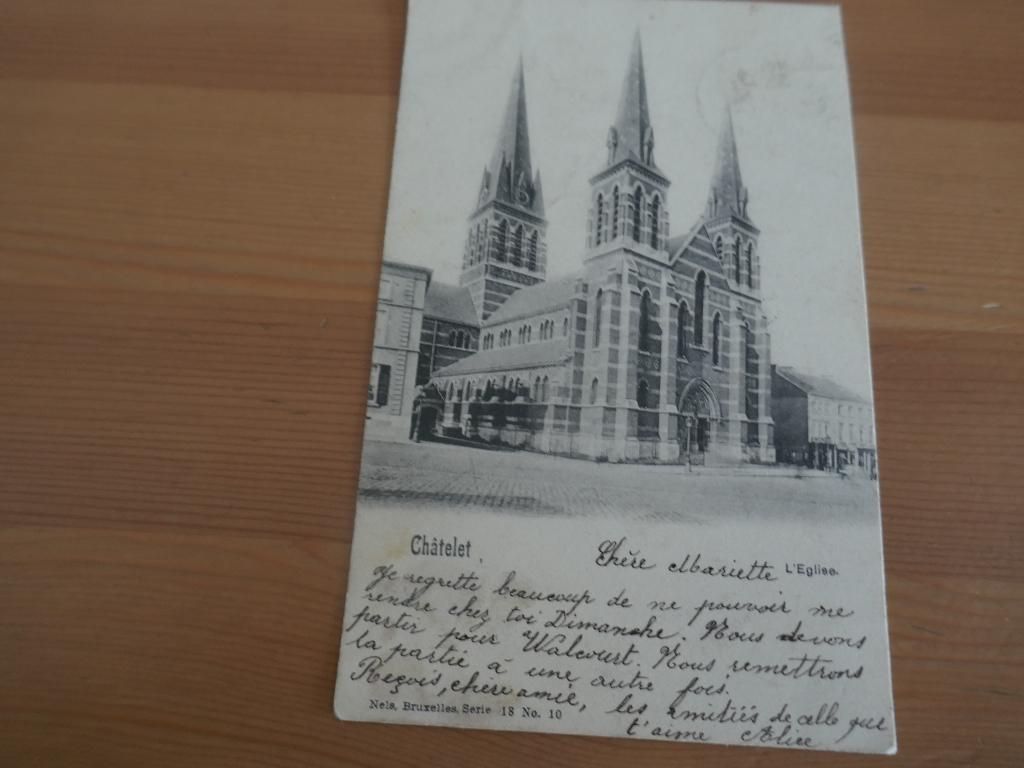 Châtelet
L'Eglise.
Chère Mariette
Je regrette beaucoup de ne pouvoir me
rendre chez toi Dimanche. Nous devons
partir pour Walcourt. Nous remettrons
la partie à une autre fois.
Reçois, chère amie, les amitiés de celle qui
t'aime Alice
Nels, Bruxelles, Serie 18 No. 10